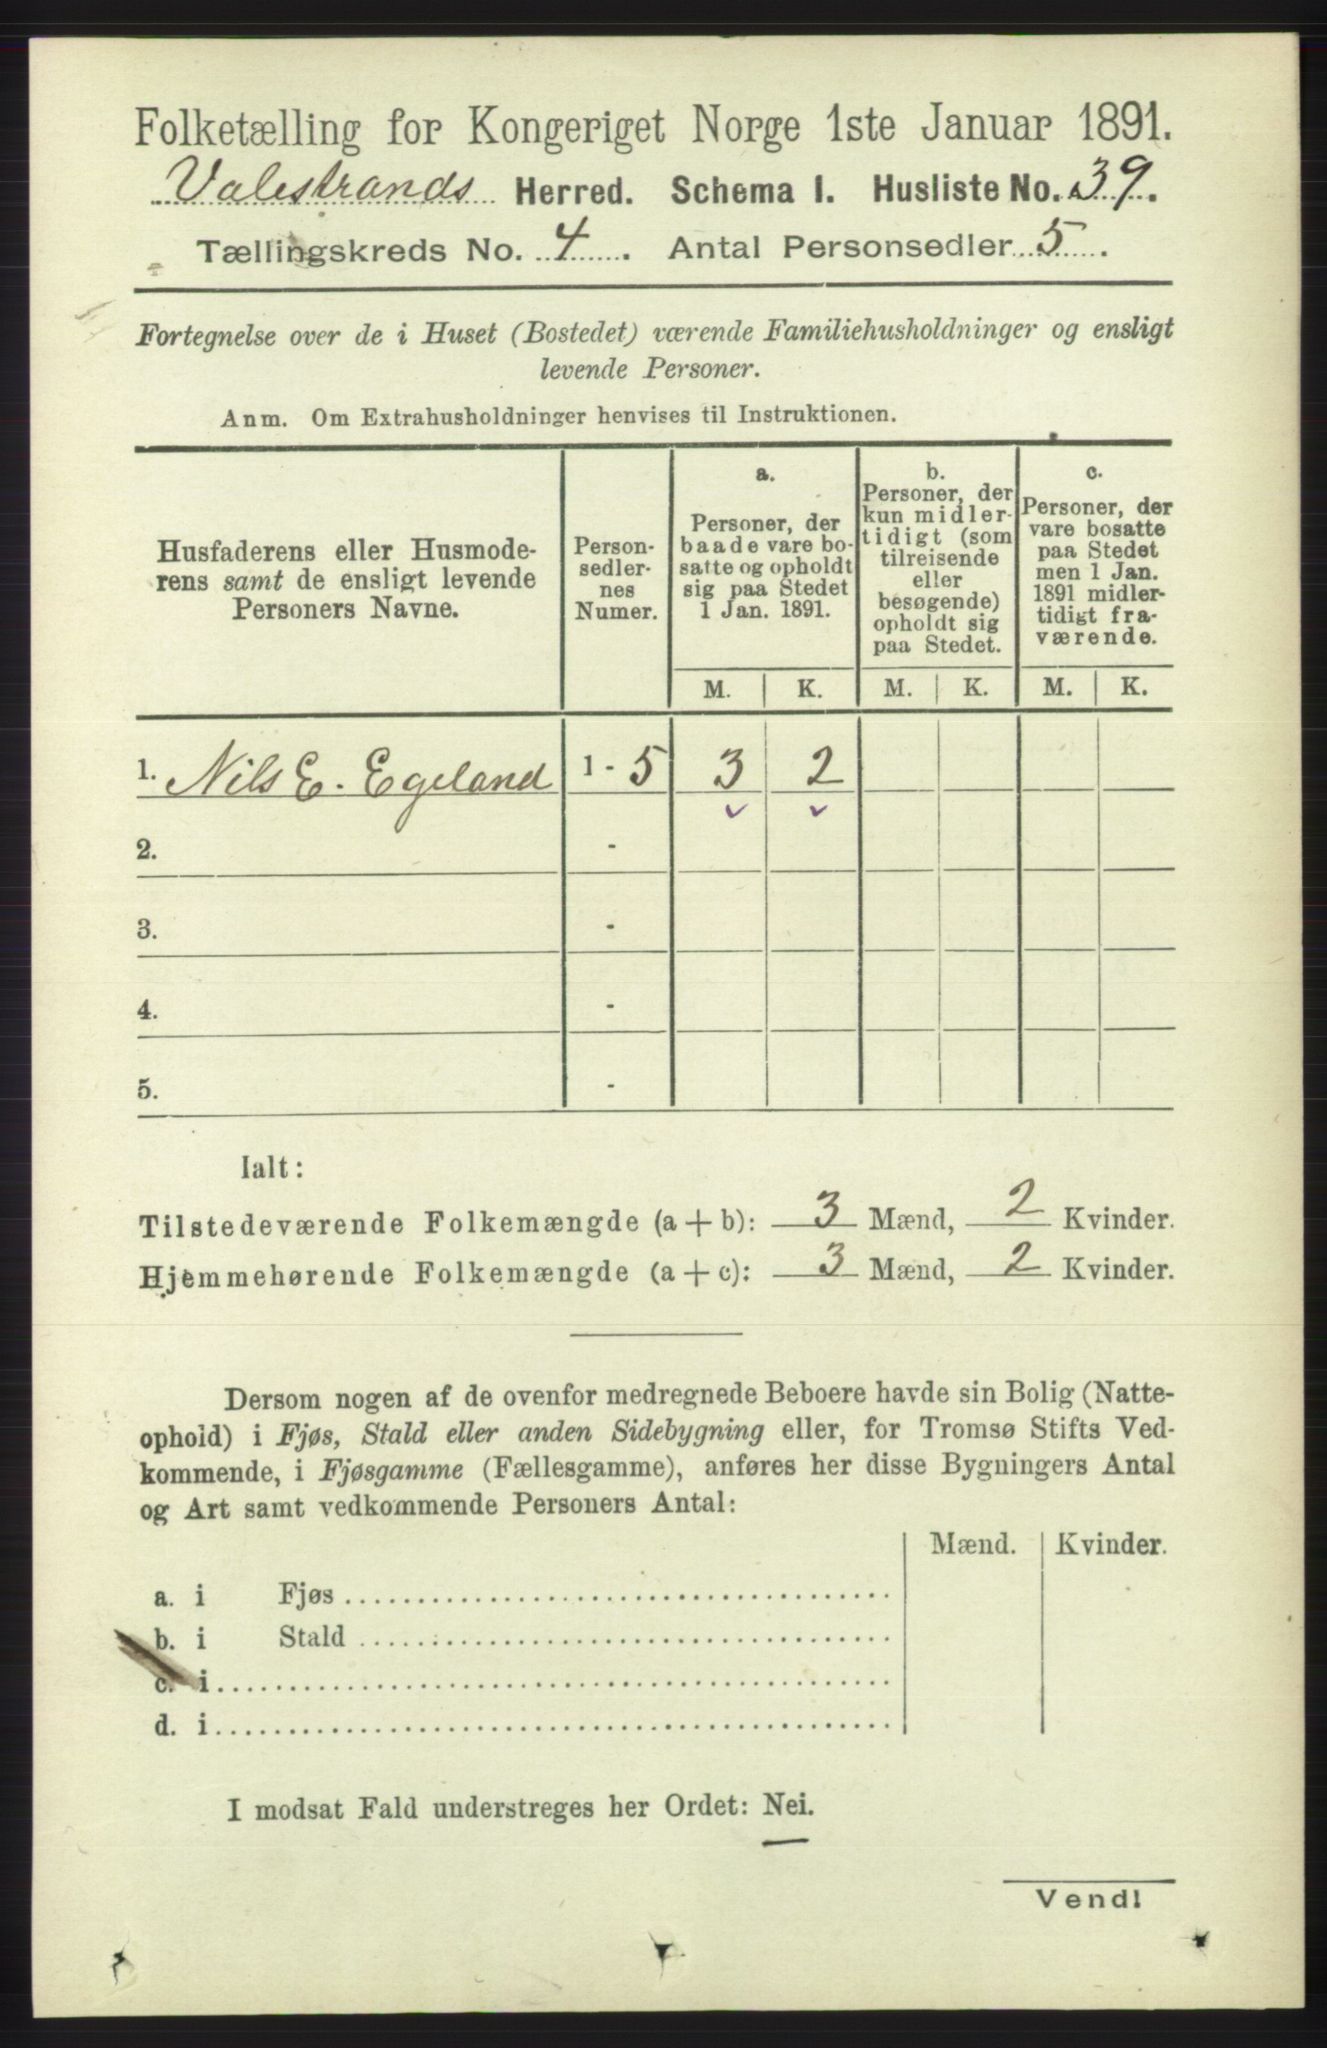 Folketælling for Kongeriget Norge 1ste Januar 1891.
Valestrands Herred. Schema I. Husliste No. 39.
Tællingskreds No. 4. Antal Personsedler 5.
Fortegnelse over de i Huset (Bostedet) værende Familiehusholdninger og ensligt
levende Personer.
Anm. Om Extrahusholdninger henvises til Instruktionen.
Husfaderens eller Husmode-
rens samt de ensligt levende
Personers Navne.
Person-
sedler-
nes
Numer.
a.
Personer, der
baade vare bo-
satte og opholdt
sig paa Stedet
1 Jan. 1891.
b.
Personer, der
kun midler-
tidigt (som
tilreisende
eller
besøgende)
opholdt sig
paa Stedet.
c.
Personer, der
vare bosatte
paa Stedet
men 1 Jan.
1891 midler-
tidigt fra-
værende.
M. K. M. K. M. K.
1. Nils E. Egeland 1 - 5 3 2
2. -
3. -
4. -
5. -
Ialt:
Tilstedeværende Folkemængde (a + b): 3 Mænd, 2 Kvinder.
Hjemmehørende Folkemængde (a + c): 3 Mænd, 2 Kvinder.
Dersom nogen af de ovenfor medregnede Beboere havde sin Bolig (Natte-
ophold) i Fjøs, Stald eller anden Sidebygning eller, for Tromsø Stifts Ved-
kommende, i Fjøsgamme (Fællesgamme), anføres her disse Bygningers Antal
og Art samt vedkommende Personers Antal:
Mænd. Kvinder.
a. i Fjøs
b. i Stald
c. i
d. i
I modsat Fald understreges her Ordet: Nei.
Vend!